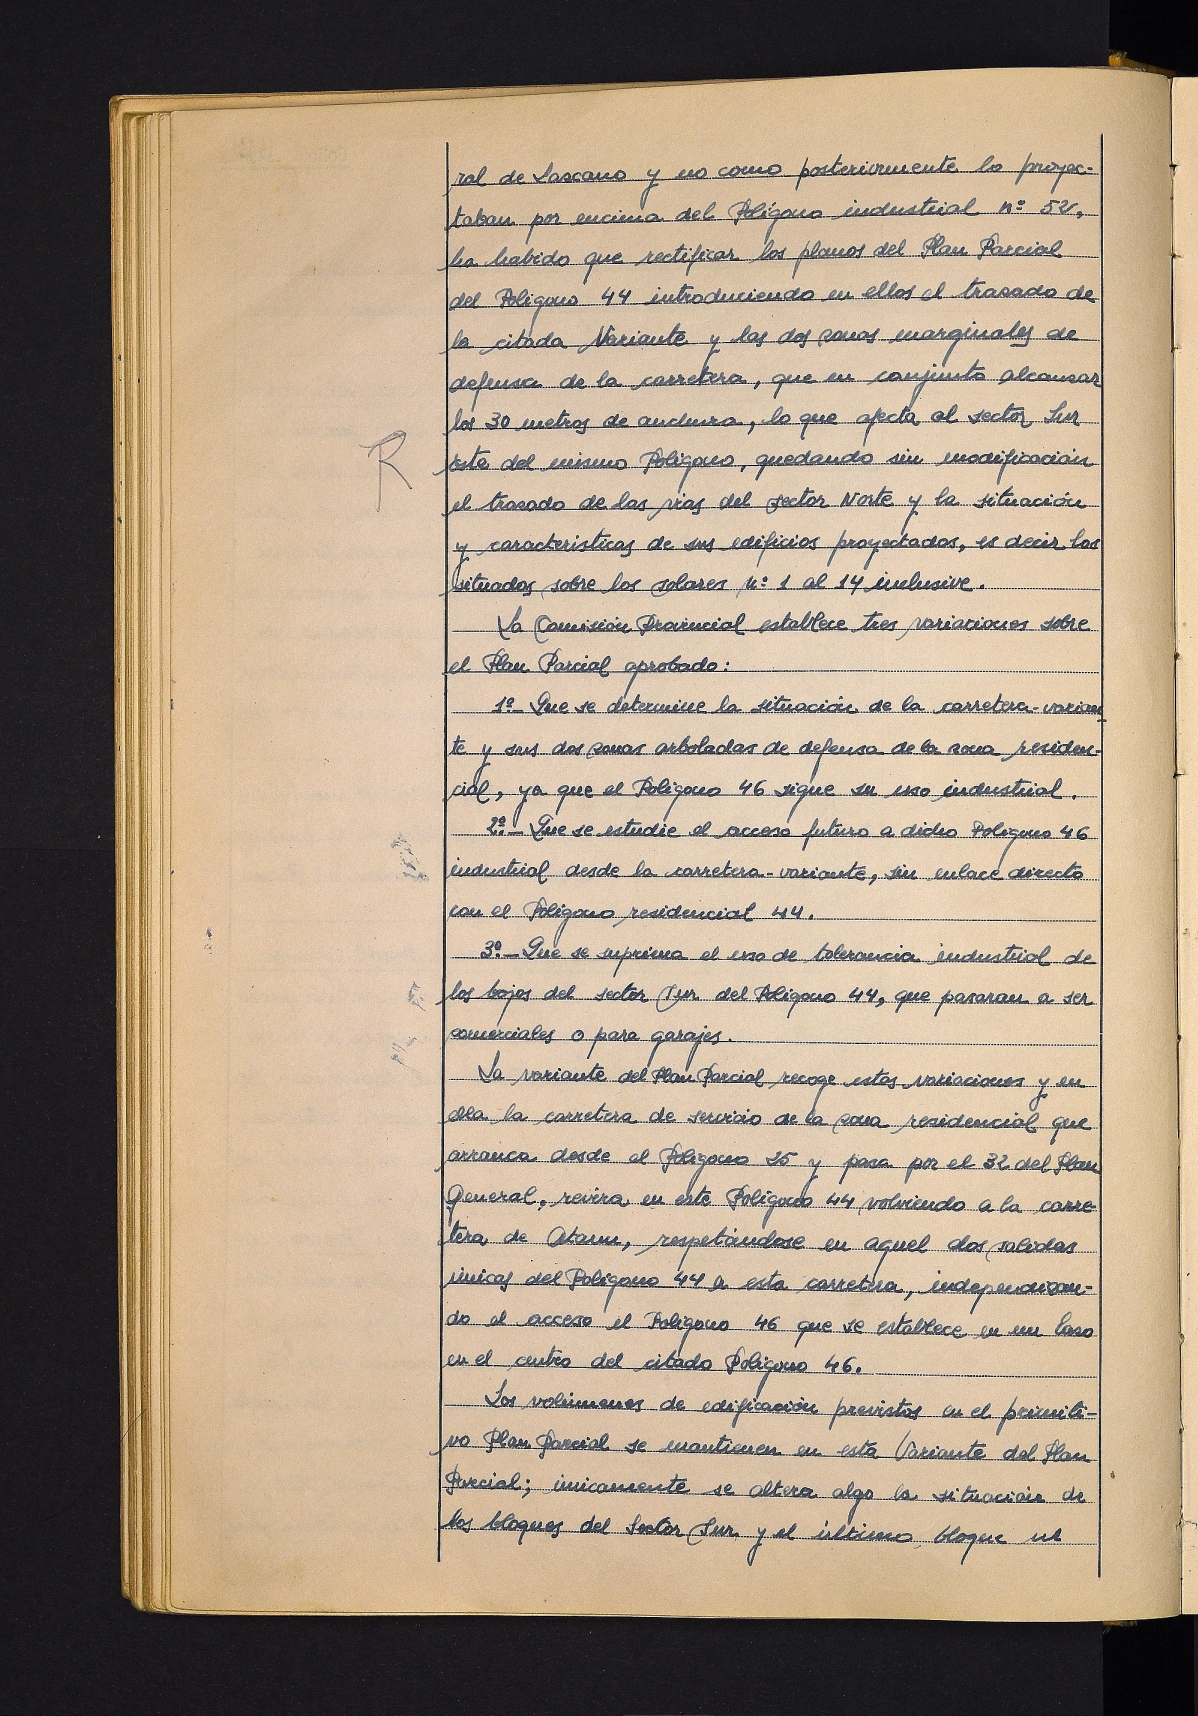 ral de Lascano y no como posteriormente lo proyec-
taban por encima del Polígono industrial nº 52,
ha habido que rectificar los planos del Plan Parcial
del Poligono 44 introduciendo en ellos el trasado de
la citada Variante y las dos zonas marginales de
defensa de la carretera, que en conjunto alcanzar
los 30 metros de anchura, lo que afecta al sector Sur
Este del mismo Polígono, quedando sin modificación
el trasado de las vias del sector Norte y la situación
y caracteristicas de sus edificios proyectados, es decir los
situados sobre los solares nº 1 al 14 inclusive.
La Comisión Provincial establece tres variaciones sobre
el Plan Parcial aprobado:
1º.- Que se determine la situación de la carretera-varian-
te y sus dos zonas arboladas de defensa de la zona residen-
cial, ya que el Poligono 46 sigue su uso industrial.
2º.- Que se estudie el acceso futuro a dicho Poligono 46
industrial desde la carretera-variante, sin enlace directo
con el Poligono residencial 44.
3º.- Que se suprima el uso de tolerancia industrial de
los bajos del sector Sur del Poligono 44, que pasaran a ser
comerciales o para garajes.
La variante del Plan Parcial recoge estas variaciones y en
ella la carretera de servicio de la zona residencial que
arranca desde el Poligono 25 y pasa por el 32 del Plan
General, revira en este Poligono 44 volviendo a la carre-
tera de Ataun, respetándose en aquel dos salidas
únicas del Poligono 44 a esta carretera, independizan-
do el acceso el Poligono 46 que se establece en un laso
en el centro del citado Poligono 46.
Los volúmenes de edificación previstos en el primiti-
vo Plan Parcial se mantienen en esta Variante del Plan
Parcial; únicamente se altera algo la situación de
los bloques del Sector Sur y el último bloque nº
R